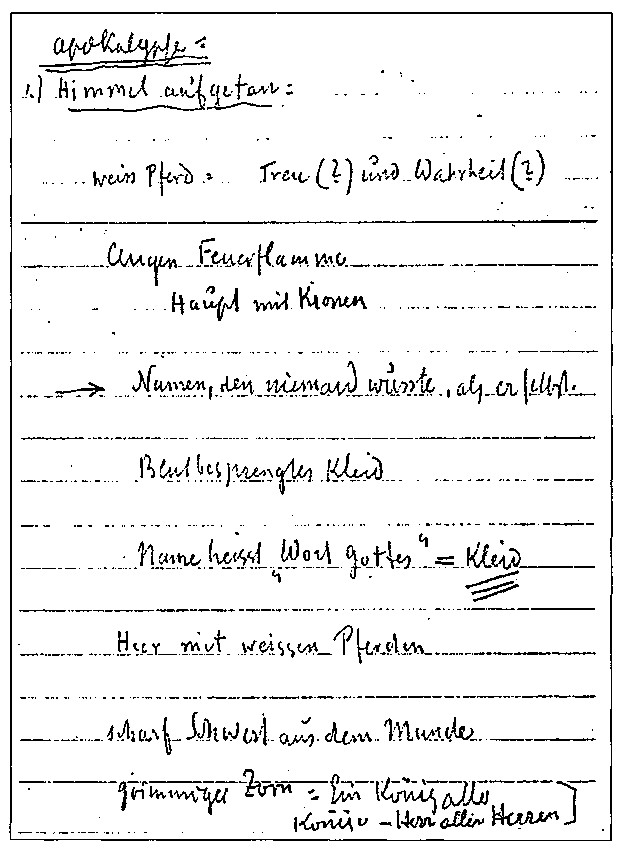 Apokalypse =
1.) Himmel aufgetan =
weiss Pferd = Treu (?) und Wahrheit (?)
Augen Feuerflamme
Haupt mit Kronen
→ Namen, den niemand wüsste, als er selbst.
Blutbesprengtes Kleid
Name heisst „Wort Gottes“ = Kleid
Heer mit weissen Pferden
scharf Schwert aus dem Munde
grimmiger Zorn = Ein König aller
Könige – Herr aller Herren]